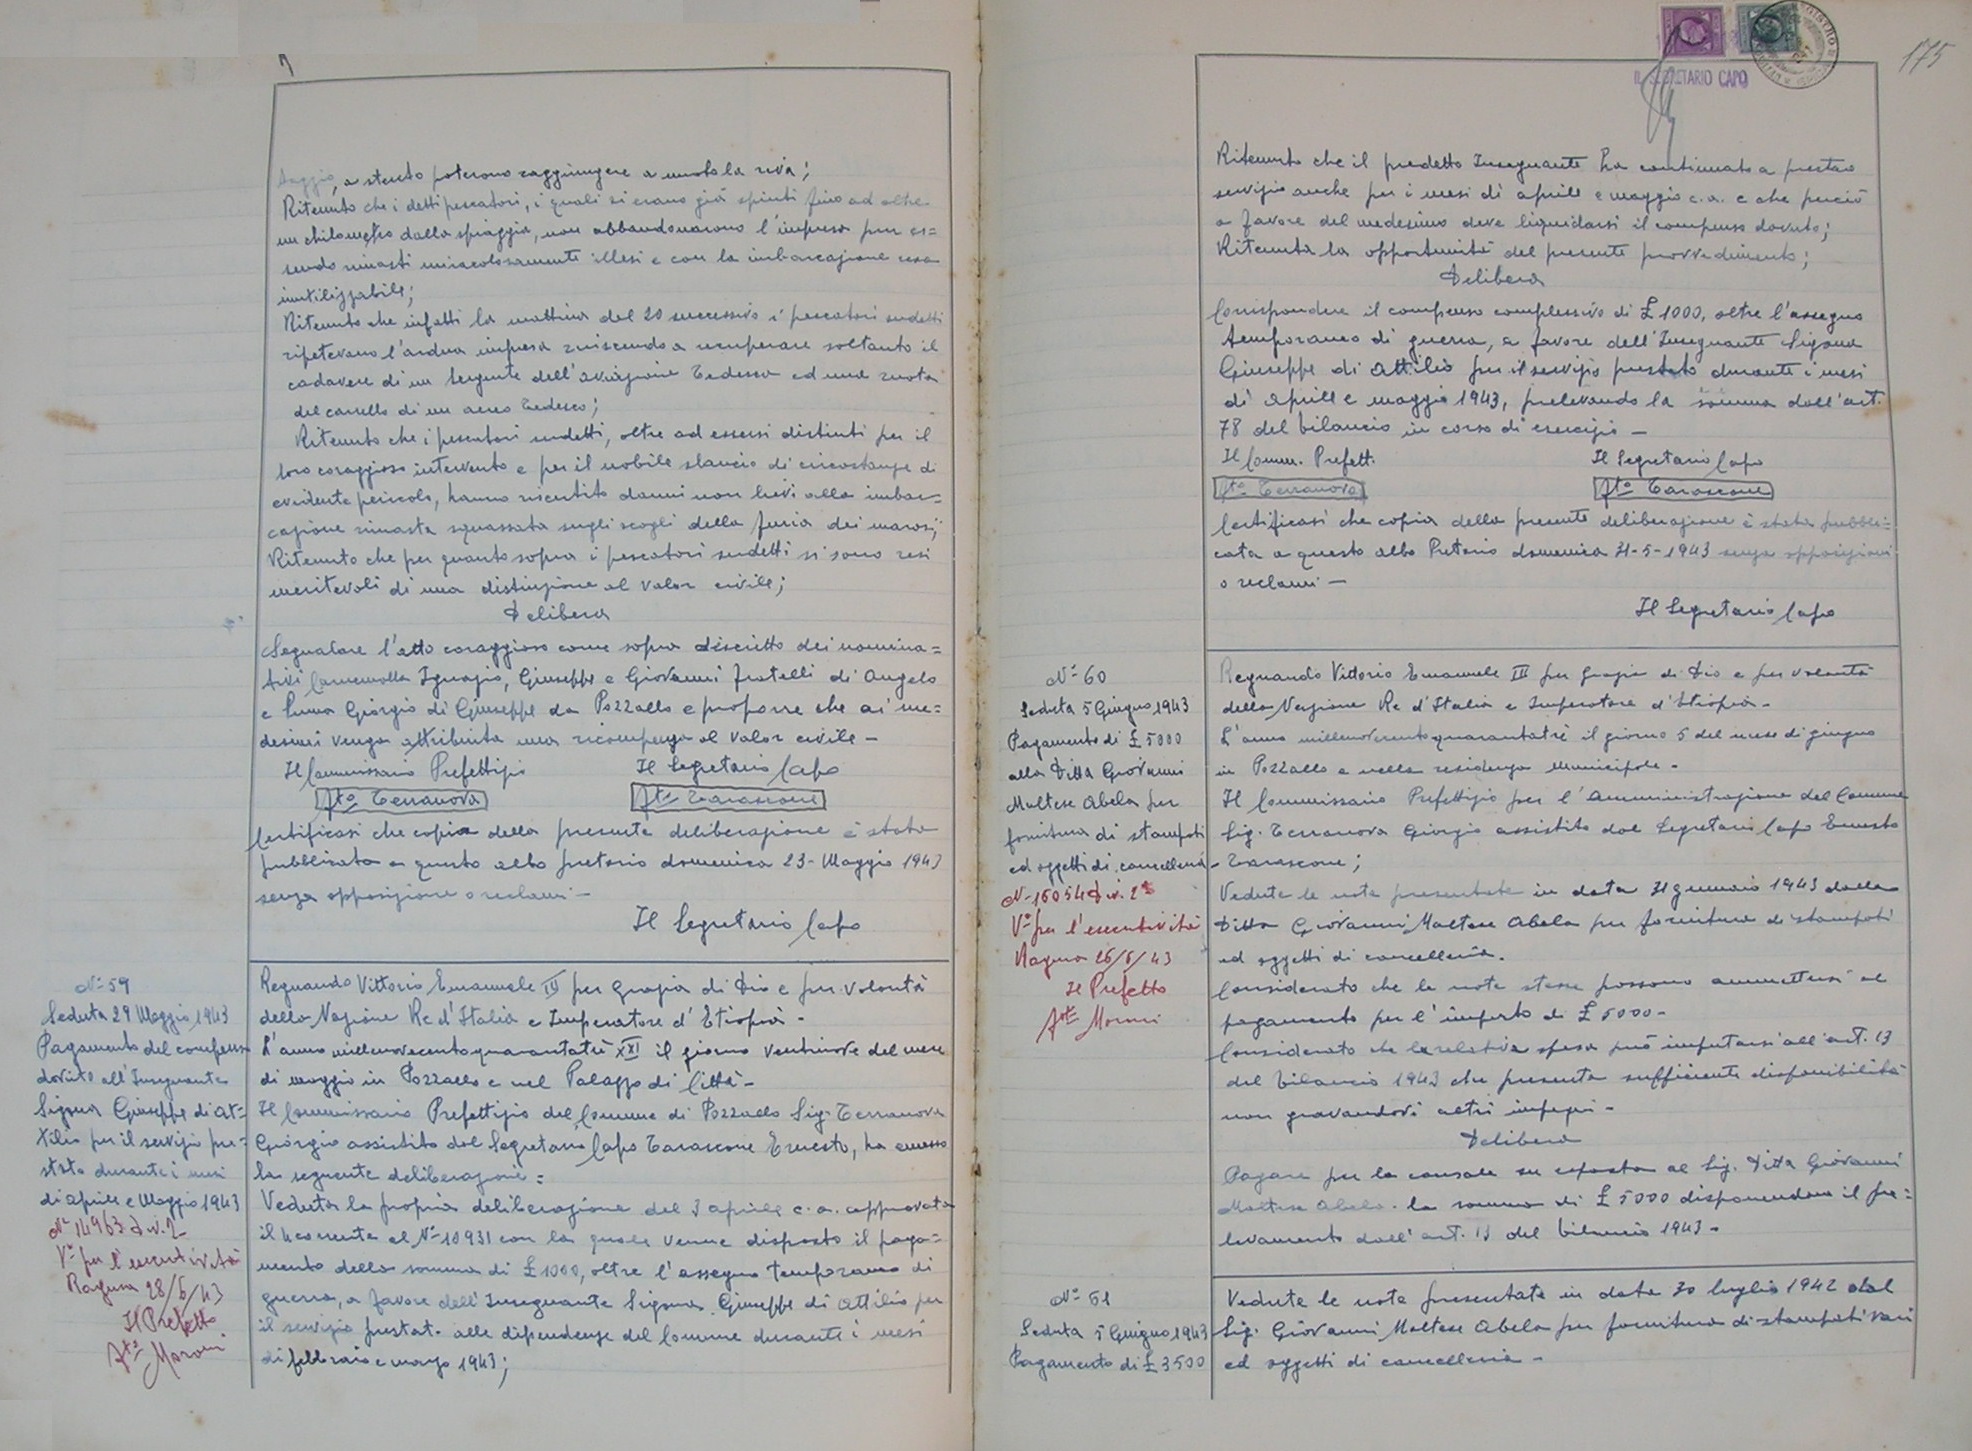 a stento poterono raggiungere a nuoto la riva;
Ritenuto che i detti pescatori, i quali si erano già spinti fino ad oltre
un chilometro dalla spiaggia, non abbandonarono l'impresa pur es=
sendo rimasti miracolosamente illesi e con la imbarcazione resa
inutilizzabile;
Ritenuto che infatti la mattina del 20 successivo i pescatori sudetti
ripetevano l'ardua impresa riuscendo a recuperare soltanto il
cadavere di un sergente dell'aviazione Tedesca ed una ruota
del carrello di un aereo Tedesco;
Ritenuto che i pescatori sudetti, oltre ad essersi distinti per il
loro coraggioso intervento e per il nobile slancio di circostanze di
evidente pericolo, hanno risentito danni non lievi alla imbar-
cazione rimasta squassata sugli scogli della furia dei marosi;
Ritenuto che per quanto sopra i pescatori sudetti si sono resi
meritevoli di una distinzione al valor civile;
Delibera
Segnalare l'atto coraggioso come sopra descritto dei nomina=
tivi Cannemolla Ignazio, Giuseppe e Giovanni fratelli di Angelo
e Giorgio di Giuseppe da Pozzallo e proporre che ai me=
desimi venga attribuita una ricompensa al valor civile -
Il Commissario Prefettizio Il Segretario Capo
fto Terranova fto Tarascone
Certificasi che copia della presente deliberazione è stata
pubblicata a questo albo pretorio domenica 23- Maggio 1943
senza opposizione o reclami -
Il Segretario Capo
N° 59
Seduta 29 Maggio 1943
Pagamento del compenso
dovuto all'Insegnante
Sigona Giuseppe di At=
tilio per il servizio pre=
stato durante i mesi
di Aprile e Maggio 1943
N° 14963 Div. 2
V° per l'esecutività
Ragusa 28/6/43
Il Prefetto
fto Maroni
Regnando Vittorio Emanuele III per grazia di Dio e per volontà
della Nazione Re d'Italia e Imperatore d'Etiopia -
L'anno millenovecentoquarantatrè XXI il giorno ventinove del mese
di maggio in Pozzallo e nel Palazzo di Città -
Il Commissario Prefettizio del Comune di Pozzallo Sig. Terranova
Giorgio assistito dal Segretario Capo Tarascone Ernesto, ha emesso
la seguente deliberazione:
Veduta la propria deliberazione del 3 aprile c. a. approvata
il 4 corrente al N° 10931 con la quale venne disposto il paga=
mento della somma di £ 1000, oltre l'assegno temporaneo di
guerra, a favore dell'Insegnante Sigona Giuseppe di Attilio per
il servizio prestat. alle dipendenze del Comune durante i mesi
di febbraio e marzo 1943;
175
IL SEGRETARIO CAPO
Ritenuto che il predetto Insegnante ha continuato a prestare
servizio anche per i mesi di aprile e maggio c. a. e che perciò
a favore del medesimo deve liquidarsi il compenso dovuto;
Ritenuta la opportunità del presente provvedimento;
Delibera
Corrispondere il compenso complessivo di £ 1000, oltre l'assegno
temporaneo di guerra, a favore dell'Insegnante Sigona
Giuseppe di Attilio per il servizio prestato durante i mesi
di aprile e maggio 1943, prelevando la somma dall'art.
78 del bilancio in corso di esercizio -
Il Comm. Prefett. Il Segretario Capo
fto Terranova fto Tarascone
Certificasi che copia della presente deliberazione è stata pubbli=
cata a questo albo Pretorio domenica 31-5-1943 senza opposizioni
o reclami -
Il Segretario Capo
N° 60
Seduta 5 Giugno 1943
Pagamento di £ 5000
alla Ditta Giovanni
Maltese Abela per
fornitura di stampati
ed oggetti di cancelleria -
N° 16054 Div. 2a
V° per l'esecutività
Ragusa 26/6/43
Il Prefetto
fto Maroni
Regnando Vittorio Emanuele III per grazia di Dio e per volontà
della Nazione Re d'Italia e Imperatore d'Etiopia -
L'anno millenovecentoquarantatrè il giorno 5 del mese di giugno
in Pozzallo e nella residenza Municipale -
Il Commissario Prefettizio per l'Amministrazione del Comune
Sig. Terranova Giorgio assistito dal Segretario Capo Ernesto
Tarascone;
Vedute le note presentate in data 31 gennaio 1943 dalla
Ditta Giovanni Maltese Abela per fornitura di stampati
ed oggetti di cancelleria.
Considerato che le note stesse possono ammettersi al
pagamento per l'importo di £ 5000 -
Considerato che la relativa spesa può imputarsi all'art. 13
del bilancio 1943 che presenta sufficiente disponibilità
non gravandovi altri impegni -
Delibera
Pagare per la causale su esposta al Sig. Ditta Giovanni
Maltese Abela la somma di £ 5000 disponendone il pre=
levamento dall'art. 13 del bilancio 1943 -
N° 61
Seduta 5 Giugno 1943
Pagamento di £ 3500
Vedute le note presentate in data 30 luglio 1942 dal
Sig. Giovanni Maltese Abela per fornitura di stampati vari
ed oggetti di cancelleria -